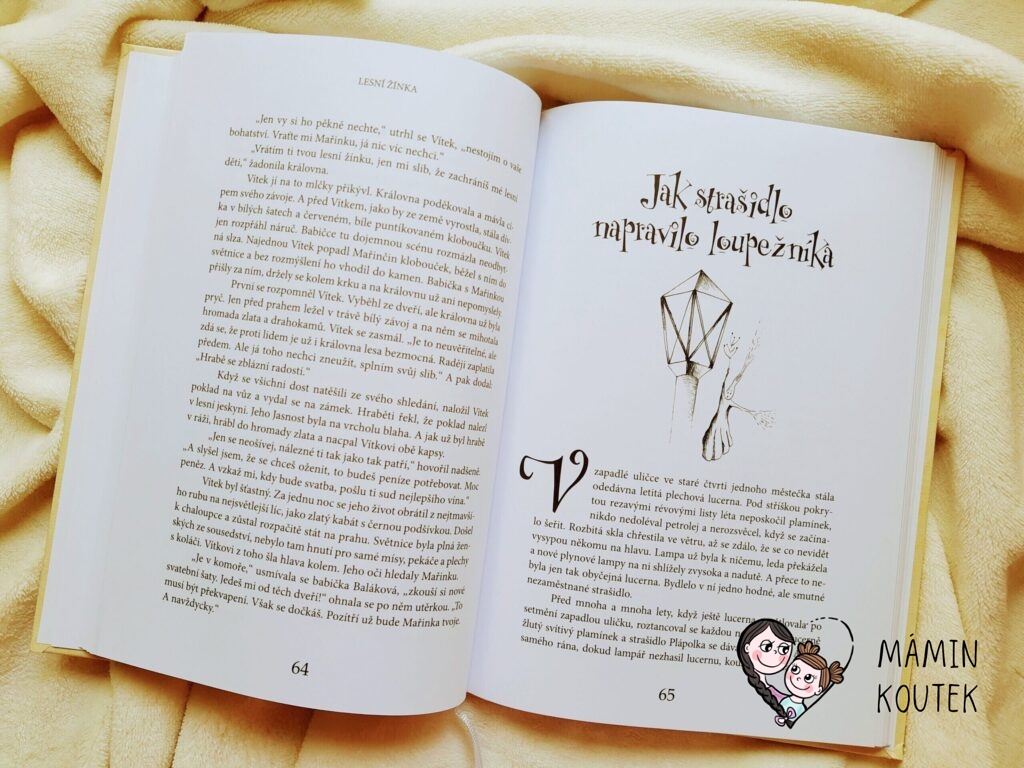 LESNÍ ŽÍNKA
„Jen vy si ho pěkně nechte,“ utrhl se Vítek, „nestojím o vaše
bohatství. Vraťte mi Mařinku, já nic víc nechci.“
„Vrátím ti tvou lesní žínku, jen mi slib, že zachráníš mé lesní
děti,“ žadonila královna.
Vítek jí na to mlčky přikývl. Královna poděkovala a mávla cí-
pem svého závoje. A před Vítkem, jako by ze země vyrostla, stála dív-
ka v bílých šatech a červeném, bíle puntíkovaném kloboučku. Vítek
jen rozpřáhl náruč. Babičce tu dojemnou scénu rozmázla neodbyt-
ná slza. Najednou Vítek popadl Mařinčin klobouček, běžel s ním do
světnice a bez rozmýšlení ho vhodil do kamen. Babička s Mařinkou
přišly za ním, držely se kolem krku a na královnu už ani nepomyslely.
První se rozpomněl Vítek. Vyběhl ze dveří, ale královna už byla
pryč. Jen před prahem ležel v trávě bílý závoj a na něm se mihotala
hromada zlata a drahokamů. Vítek se zasmál. „Je to neuvěřitelné, ale
zdá se, že proti lidem je už i královna lesa bezmocná. Raději zaplatila
předem. Ale já toho nechci zneužít, splním svůj slib.“ A pak dodal:
„Hrabě se zblázní radostí.“
Když se všichni dost natěšili ze svého shledání, naložil Vítek
poklad na vůz a vydal se na zámek. Hraběti řekl, že poklad nalezl
v lesní jeskyni. Jeho Jasnost byla na vrcholu blaha. A jak už byl hrabě
v ráži, hrábl do hromady zlata a nacpal Vítkovi obě kapsy.
„Jen se neošívej, nálezné ti tak jako tak patří,“ hovořil nadšeně.
„A slyšel jsem, že se chceš oženit, to budeš peníze potřebovat. Moc
peněz. A vzkaž mi, kdy bude svatba, pošlu ti sud nejlepšího vína.“
Vítek byl šťastný. Za jednu noc se jeho život obrátil z nejtmavší-
ho rubu na nejsvětlejší líc, jako zlatý kabát s černou podšívkou. Došel
k chaloupce a zůstal rozpačitě stát na prahu. Světnice byla plná žen-
ských ze sousedství, nebylo tam hnutí pro samé mísy, pekáče a plechy
s koláči. Vítkovi z toho šla hlava kolem. Jeho oči hledaly Mařinku.
„Je v komoře,“ usmívala se babička Baláková, „zkouší si nové
svatební šaty. Jedeš mi od těch dveří!“ ohnala se po něm utěrkou. „To
musí být překvapení. Však se dočkáš. Pozítří už bude Mařinka tvoje.
A navždycky.“
64
Jak strašidlo
napravilo loupežníka
V zapadlé uličce ve staré čtvrti jednoho městečka stála
odedávna letitá plechová lucerna. Pod stříškou pokry-
tou rezavými révovými listy léta neposkočil plamínek,
nikdo nedoléval petrolej a nerozsvěcel, když se začína-
lo šeřit. Rozbitá skla chřestila ve větru, až se zdálo, že se co nevidět
vysypou někomu na hlavu. Lampa už byla k ničemu, leda překážela
a nové plynové lampy na ni shlížely zvysoka a nadutě. A přece to ne-
byla jen tak obyčejná lucerna. Bydlelo v ní jedno hodné, ale smutné
nezaměstnané strašidlo.
Před mnoha a mnoha lety, když ještě lucerna po
setmění zapadlou uličku, roztancoval se každou
žlutý svítivý plamínek a strašidlo Plápolka se
samého rána, dokud lampář nezhasil lucernu,
65
MÁMIN
KOUTEK